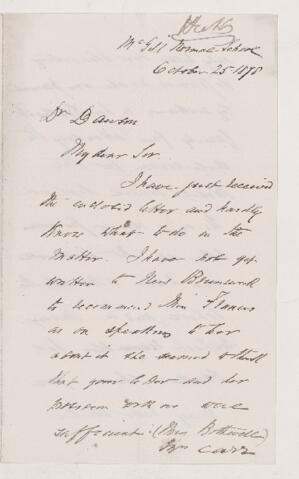 McGill Normal School
October 25 1875
Dr Dawson
My dear Sir.
I have just received
the enclosed letter and hardly
know what to do in the
matter. I have not yet
written to New Brunswick
to recommend Miss Francis
as on speaking to her
about it she seemed to think
that your letter and her
were
sufficient. (Miss Bothwell)